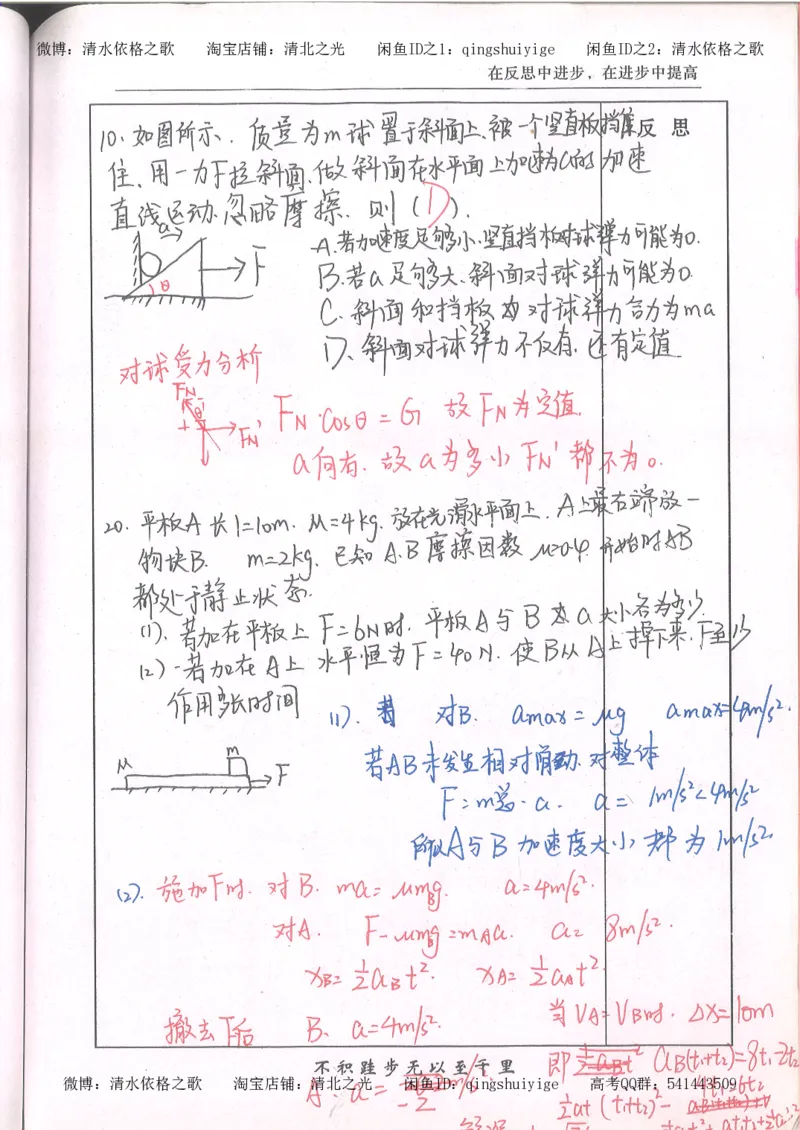 微博：清水依格之歌 淘宝店铺：清北之光 闲鱼ID之1：qingshuiyige 闲鱼ID之2：清水依格之歌
在反思中进步，在进步中提高
反 思
10. 如图所示. 质量为m球置于斜面上、被一个竖直板挡
住、用一力F拉斜面、做斜面在水平面上加速为a的加速
直线运动. 忽略摩擦. 则(D).
A. 若加速度足够小. 竖直挡板对球弹力可能为0.
B. 若a足够大、斜面对球弹力可能为0.
C. 斜面和挡板 对球弹力合力为ma
D、斜面对球弹力不仅有, 还有定值
a
F
θ
对球受力分析
FN
θ
FN'
FN·cosθ=G 故FN为定值.
a向右. 故a为多少 FN' 都不为0.
20. 平板A长l=10m. M=4kg. 放在光滑水平面上. A上最右端放一
物块B. m=2kg. 已知A.B摩擦因数 μ=0.4. 开始时AB
都处于静止状态.
(1). 若加在平板上F=6N时. 平板A与B a大小各为多少.
(2) 若加在A上水平恒力F=40N. 使B从A上掉下来. F至少
作用多长时间
M m F
(1). 对B. amax=μg amax=4m/s².
若AB未发生相对滑动. 对整体
F=m总·a. a= 1m/s²<4m/s²
所以A与B加速度大小都为1m/s².
(2). 施加F时. 对B. ma=μmBg. a=4m/s².
对A. F-μmBg=mAa. a= 8m/s².
xB=½aBt². xA=½aAt²
当VA=VB时. Δx=10m
撤去F后 B. a=4m/s².
不积跬步无以至千里
即 aB(t₁+t₂)=8t₁-2t₂
微博：清水依格之歌 淘宝店铺：清北之光 闲鱼ID之1：qingshuiyige 高考QQ群：541443509
A. a= -2 m/s²